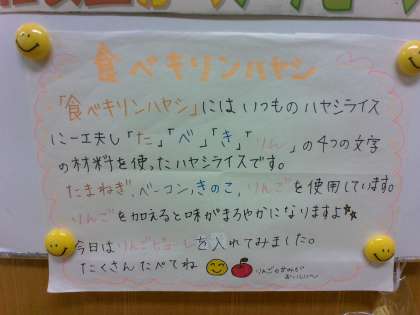 食べキリンハヤシ
「食べキリンハヤシ」にはいつものハヤシライス
に一工夫し「た」「べ」「き」「りん」の4つの文字
の材料を使ったハヤシライスです。
たまねぎ、ベーコン、きのこ、りんごを使用しています。
りんごを加えると味がまろやかになりますよ
今日はりんごピューレを入れてみました。
たくさんたべてね